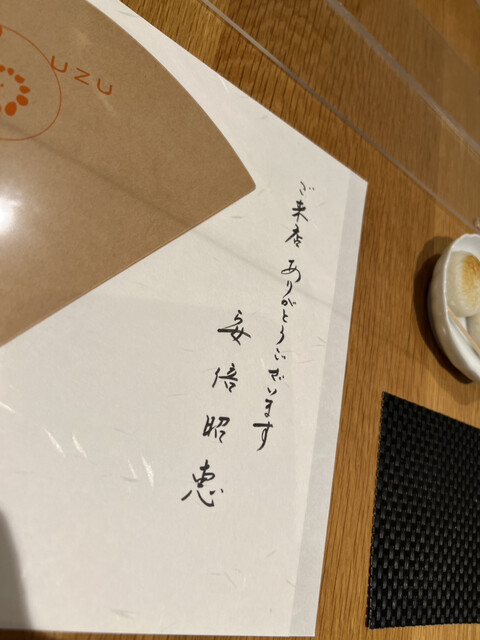 ご来店ありがとうございます
安倍昭恵
UZU